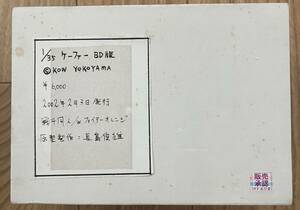 1/35 ケーファー BD版
©KOW YOKOYAMA
¥6,000
2002年2月3日発行
同人/ファイターオレンジ
原型製作：
販売
承認